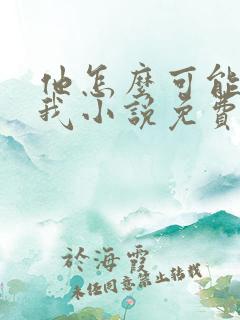 他怎麼可能
我小說免費
於海霞
未經同意禁止轉載